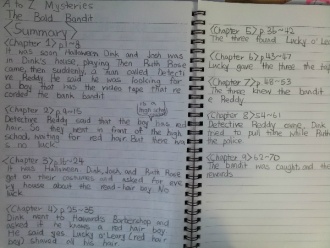 A to Z Mysteries
The Bald Bandit
<Summary>
<Chapter 1> p.1~8
It was soon Halloween. Dink and Josh was
in Dink's house, playing. Then Ruth Rose
came. Then suddenly, a man called Detecti
ve Reddy. He said he was looking for
a boy that has the video tape that re
corded the bank bandit.
<Chapter 2> p.9~15
Detective Reddy said that the boy has red
hair. So they went in front of the high
school, waiting for red hair. But there was
no luck.
<Chapter 3> p.16~24
It was Halloween. Dink, Josh, and Ruth Rose
got on their costumes and asked for eve
ry house about the red-hair boy. No
luck.
<Chapter 4> p.25~35
Dink went to Howard's Barbershop and
asked if he knows a red hair boy.
He said yes. Lucky O'Leary (red hair
boy) shaved all his hair.
<Chapter 5> p.36~42
The three found Lucky O'Le
<Chapter 6> p.43~47
Lucky gave the three the tap
<Chapter 7> p.48~53
The three knew the bandit
e Reddy.
<Chapter 8> p.54~61
Detective Reddy came. Dink
tried to pull time while Ruth
the police.
<Chapter 9> p.62~70
The bandit was caught and the
rewards.